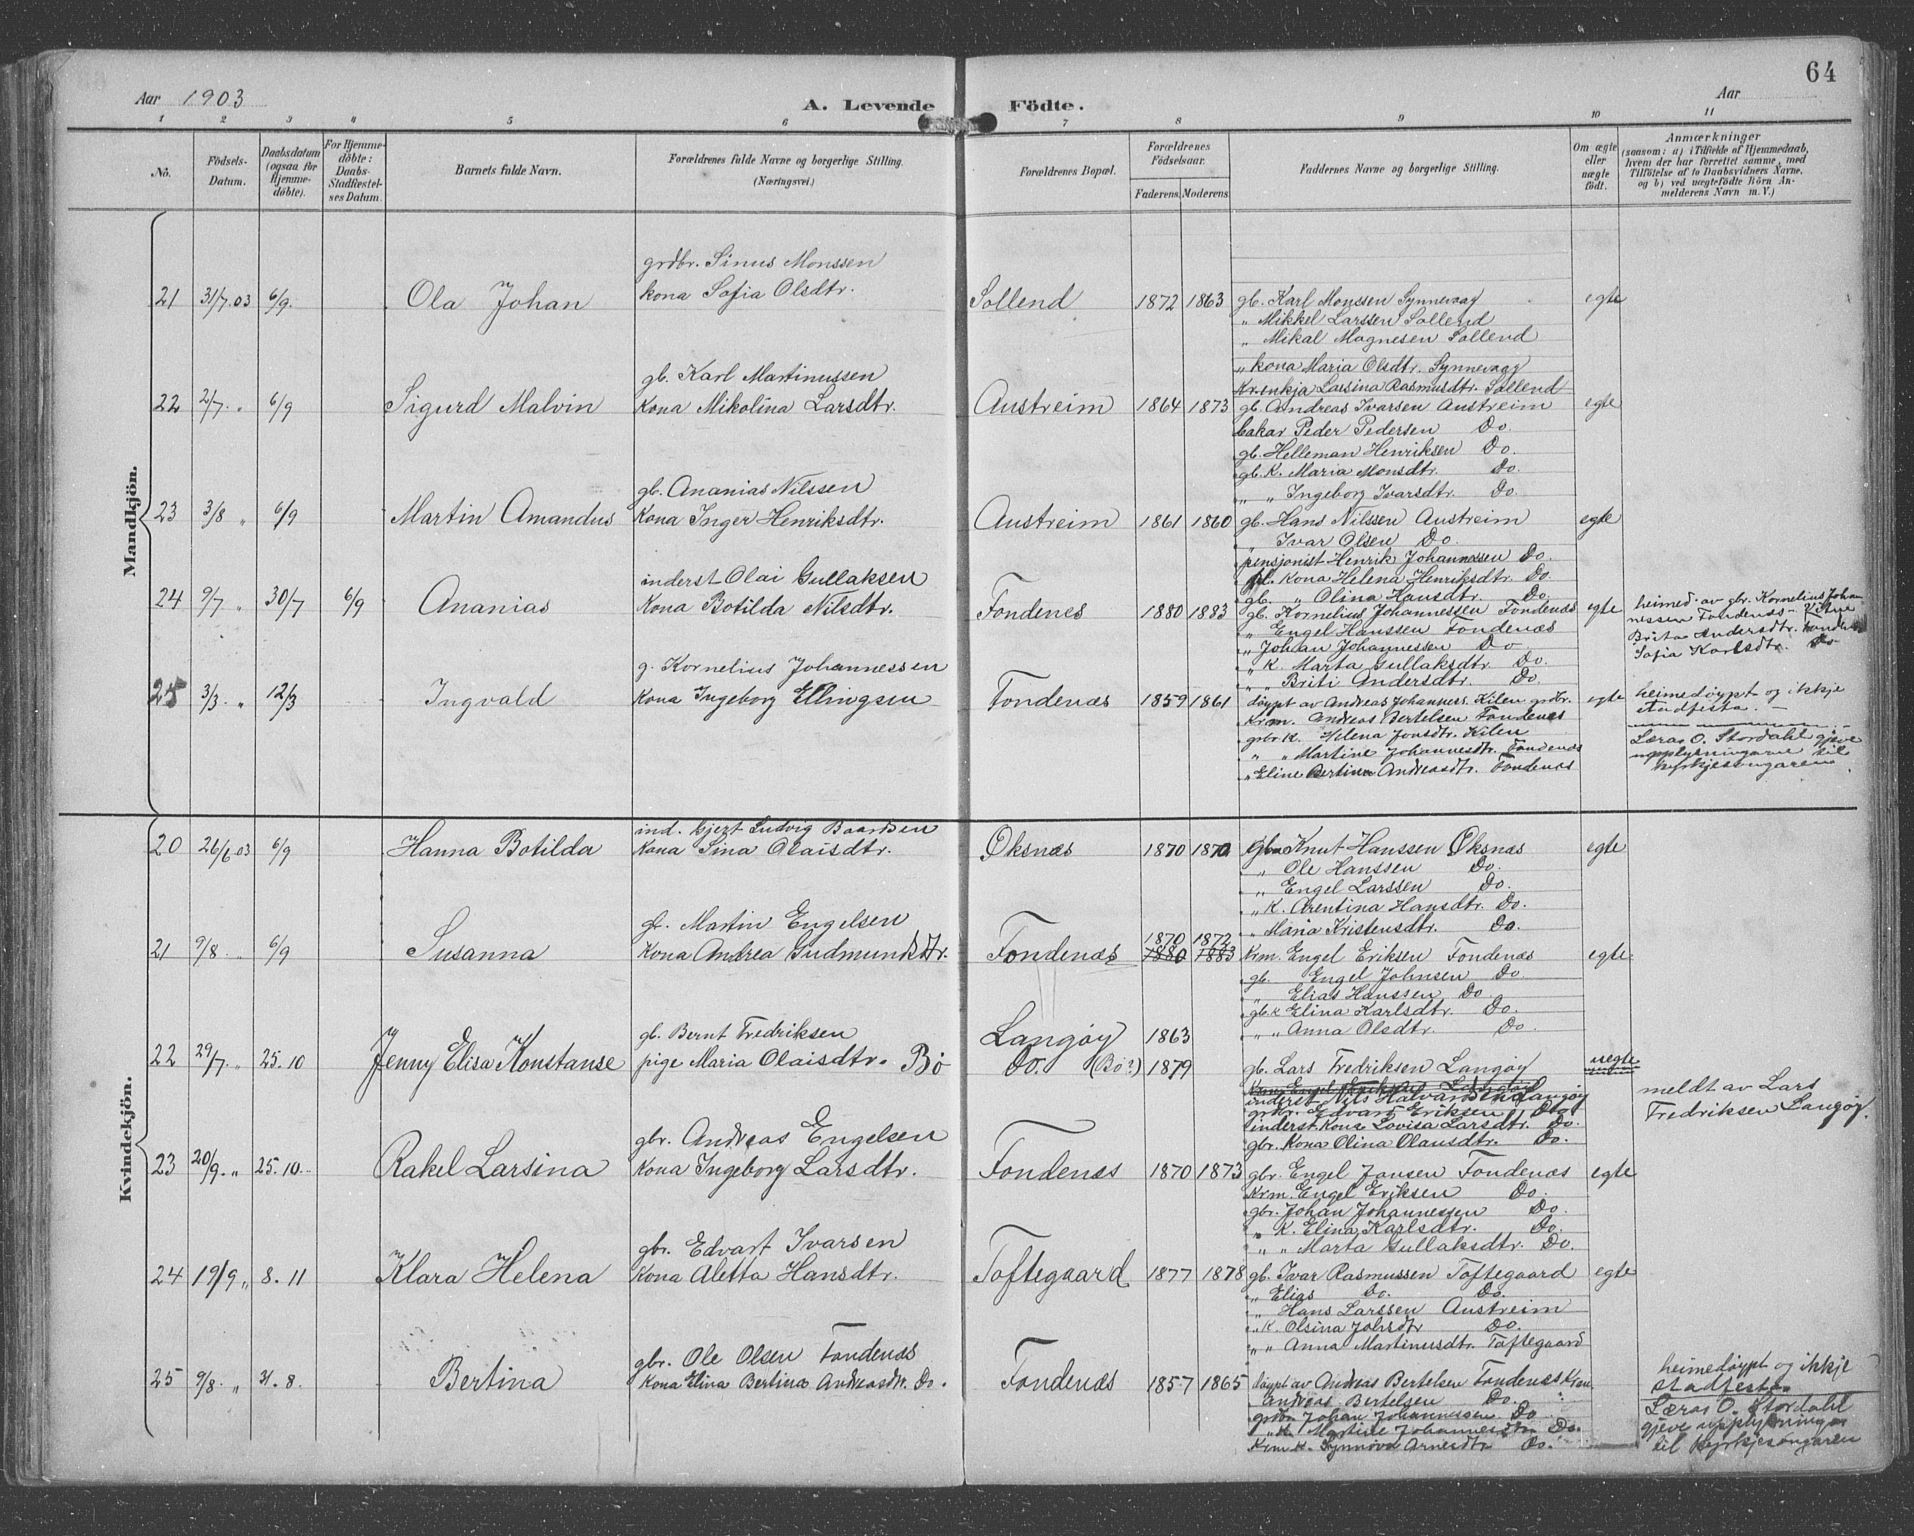 64
Aar 1903
A. Levende Födte.
Aar
1 2 3 4 5 6 7 8 9 10 11
No.
Födsels-Datum.
Daabsdatum (ogsaa for Hjemme-döbte).
For Hjemme-döbte: Daabs-Stadfæstel-ses Datum.
Barnets fulde Navn.
Forældrenes fulde Navne og borgerlige Stilling. (Næringsvei.)
Forældrenes Bopæl.
Forældrenes Födselsaar.
Faderens. Moderens.
Faddernes Navne og borgerlige Stilling.
Om ægte eller uægte födt.
Anmærkninger
(saasom: a) i Tilfælde af Hjemmedaab,
hvem der har forrettet samme, med
Tilföielse af to Daabsvidners Navne,
og b) ved uægtefödte Börn An-
melderens Navn m. V.)
Mandkjön.
grdbr. Sinus Monssen
21 31/7.03 6/9. Ola Johan kona Sofia Olsdtr. Sollend 1872 1863 gb. Karl Monssen Synnevaag egte
" Mikkel Larssen Sollend
" Mikal Magnesen Sollend
" kona Maria Olsdtr. Synnevaag
Kr.enkja Larsina Rasmusdtr. Sollend
gb. Karl Martinussen
22 2/7. " 6/9 Sigurd Malvin Kona Mikolina Larsdtr. Austreim 1864 1873 gb. Andreas Ivarsen Austreim egte
bakar Peder Pedersen Do.
gb. Helleman Henriksen Do.
gb. K. Maria Monsdtr. Do.
" " Ingeborg Ivarsdtr. Do.
gb. Ananias Nilssen
23 3/8 " 6/9 Martin Amandus Kona Inger Henriksdtr. Austreim 1861 1860 gb. Hans Nilssen Austreim egte
" Ivar Olsen Do.
pensjonist Henrik Johannessen Do.
Kona Helena Henriksdtr. Do.
gb. " Olina Hansdtr. Do.
inderst Olai Gullaksen
24 9/7 " 30/7 6/9 Ananias Kona Botilda Nilsdtr. Fondenes 1880 1883 gb. Kornelius Johannessen Fondenæs egte
" Engel Hanssen Fondenæs
" Johan Johannessen Do
" K. Marta Gullaksdtr. Do.
" " Briti Andersdtr. Do.
heimed. av gbr. Kornelius Johan
nessen Fondenæs
Brita Andersdtr.
Sofia Karlsdtr. Do
g. Kornelius Johannessen
25 3/3. " 12/3 Ingvald Kona Ingeborg Ellingsen Fondenæs 1859 1861 döypt av Andreas Johanness. Kilen grdbr. egte
Krm. Andreas Bertelsen Fondenæs
grbr K. Helena Jonsdtr. Kilen
" " Martine Johannesdtr. Fondenæs
" Eline Bertina Andreasdtr. Fondenæs
heimedöypt og ikkje
stadfesta.
Lærar O. Stordahl gjeve
upplysningane til
kyrkjesongaren
Kvindekjön.
ind. Gjert Ludvig Baardsen
20 26/6.03 6/9 Hanna Botilda Kona Sina Olaisdtr. Øksnæs 1870 1870 gbr Knut Hanssen Øksnæs egte
" Ole Hanssen Do.
" Engel Larssen Do.
" K. Arentina Hansdtr. Do.
" Maria Kristensdtr. Do.
gb. Martin Engelsen
1870 1872
21 9/8. " 6/9 Susanna Kona Andrea Gudmundsdtr. Fondenæs 1880 1883 Krm. Engel Eriksen Fondenæs egte.
gb. Engel Johnsen Do.
" Elias Hanssen Do
gb K Elina Karlsdtr. Do.
" " Anna Olsdtr. Do.
gb. Bernt Fredriksen Langøy 1863
22 29/7. " 25.10 Jenny Elisa Konstanse pige Maria Olaisdtr. Bö Do. (Bö?) 1879 gb. Lars Fredriksen Langøy uegte
Krm Engel Eriksen Langøy
inderst Nils Halvardsen Langøy
grbr. Edvart Eriksen Do.
inderst Kona Lovisa Larsdtr. Do.
gbr. Kona Olina Olausdtr. Do.
meldt av Lars
Fredriksen Langøy.
gbr. Andreas Engelsen
23 20/9. " 25.10 Rakel Larsina Kona Ingeborg Larsdtr. Fondenæs 1870 1873 gbr. Engel Jansen Fondenæs egte
Krm. Engel Eriksen Do.
gbr. Johan Johannessen Do.
" K. Elina Karlsdtr. Do.
" " Marta Gullaksdtr. Do.
gbr. Edvart Ivarsen
24 19/9 " 8.11 Klara Helena Kona Aletta Hansdtr. Toftegaard 1877 1878 gb. Ivar Rasmussen Toftegaard egte
" Elias Do. Do.
" Hans Larssen Austreim
" K. Olsina Johsdtr Do.
" " Anna Martinusdtr. Toftegaard
gbr. Ole Olsen Fondenæs
25 9/8. " 31.8. Bertina Kona Elina Bertina Andreasdtr. Do. Fondenæs 1857 1865 döypt av Andreas Bertelsen Fondenæs Krm.
Andreas Bertelsen Do.
grdbr Johan Johannessen Do
" K. Martine Johannesdtr Do.
Krm K. Synnöva Arnesdtr Do.
heimedöypt og ikkje
stadfesta
Lærar O. Stordahl
gjeve upplysningar
til kyrkjesongaren